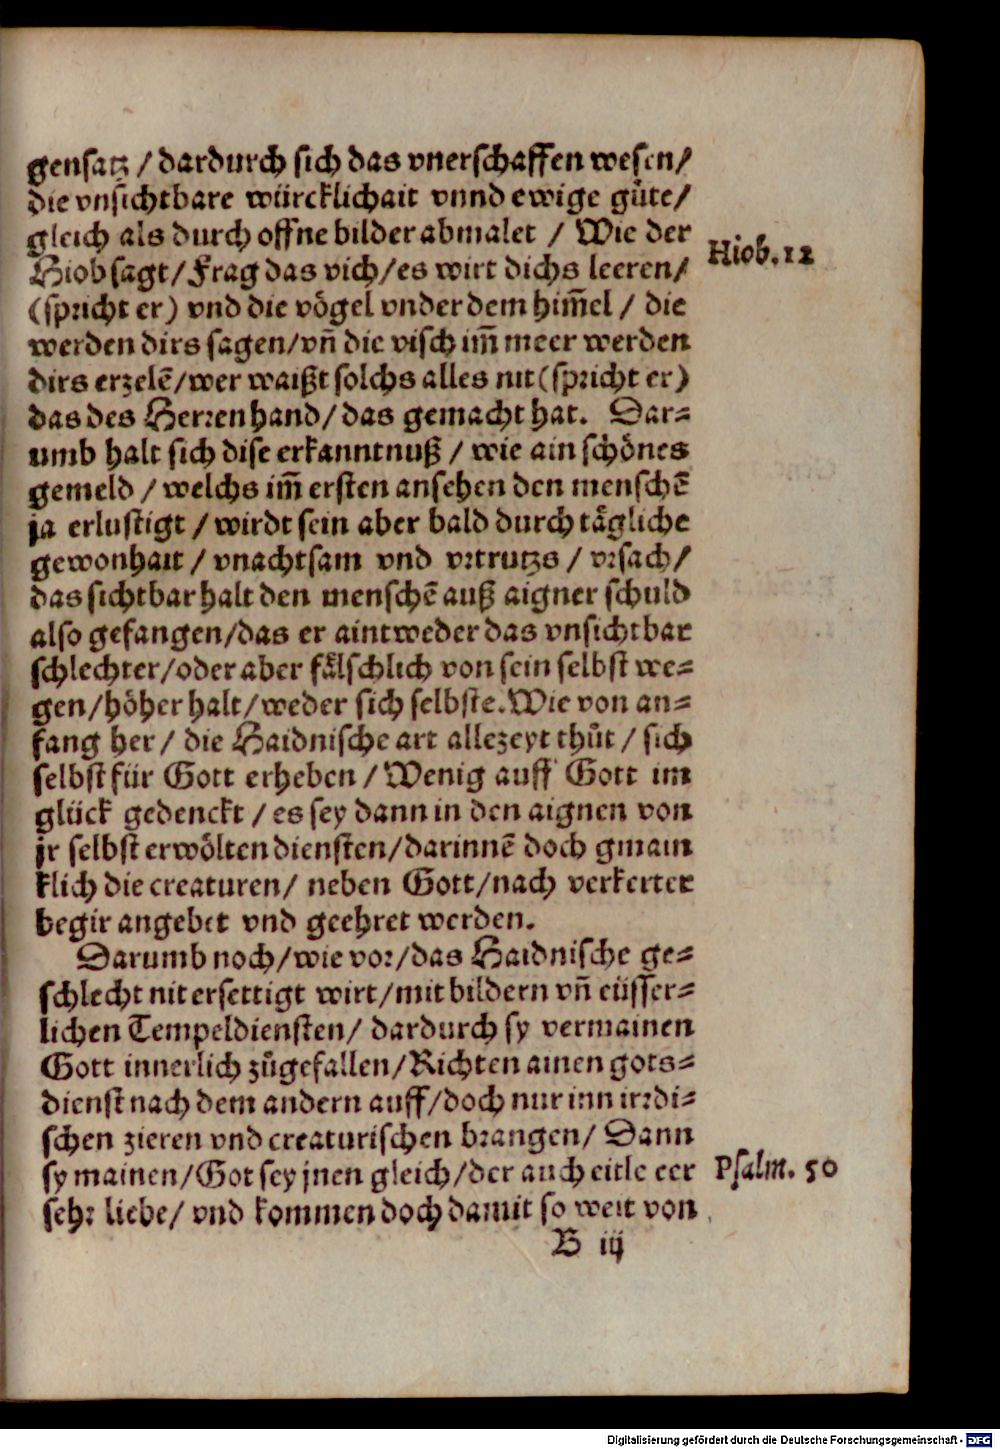 gensatz / dardurch sich das vnerschaffen wesen/
die vnsichtbare würcklichait vnnd ewige guͤte/
gleich als durch offne bilder abmalet / Wie der
Hiob sagt/Frag das vich/es wirt dichs leeren/
Hiob. 12
(spricht er) vnd die voͤgel vnder dem him̃el / die
werden dirs sagen/vñ die visch im̃ meer werden
dirs erzelẽ/wer waißt solchs alles nit(spricht er)
das des Herren hand/das gemacht hat. Dar⸗
umb halt sich dise erkanntnuß / wie ain schoͤnes
gemeld / welchs im̃ ersten ansehen den menschẽ
ja erlustigt / wirdt sein aber bald durch taͤgliche
gewonhait / vnachtsam vnd vrtrutzs / vrsach/
das sichtbar halt den menschẽ auß aigner schuld
also gefangen/das er aintweder das vnsichtbar
schlechter/oder aber faͤlschlich von sein selbst we⸗
gen/hoͤher halt/weder sich selbste. Wie von an⸗
fang her/ die Haidnische art allezeyt thuͦt / sich
selbst für Gott erheben / Wenig auff Gott im
glück gedenckt / es sey dann in den aignen von
jr selbst erwoͤlten diensten/darinnẽ doch gmain
klich die creaturen/ neben Gott/nach verkerter
begir angebet vnd geehret werden.
Darumb noch/wie vor/das Haidnische ge⸗
schlecht nit ersettigt wirt/mit bildern vñ eüsser⸗
lichen Tempeldiensten/ dardurch sy vermainen
Gott innerlich zuͦgefallen/Richten ainen gots⸗
dienst nach dem andern auff/doch nur inn irrdi⸗
schen zieren vnd creaturischen brangen/ Dann
sy mainen/Got sey jnen gleich/der auch eitle eer
Psalm. 50
sehr liebe/ vnd kommen doch damit so weit von
B iij
Digitalisierung gefördert durch die Deutsche Forschungsgemeinschaft - DFG